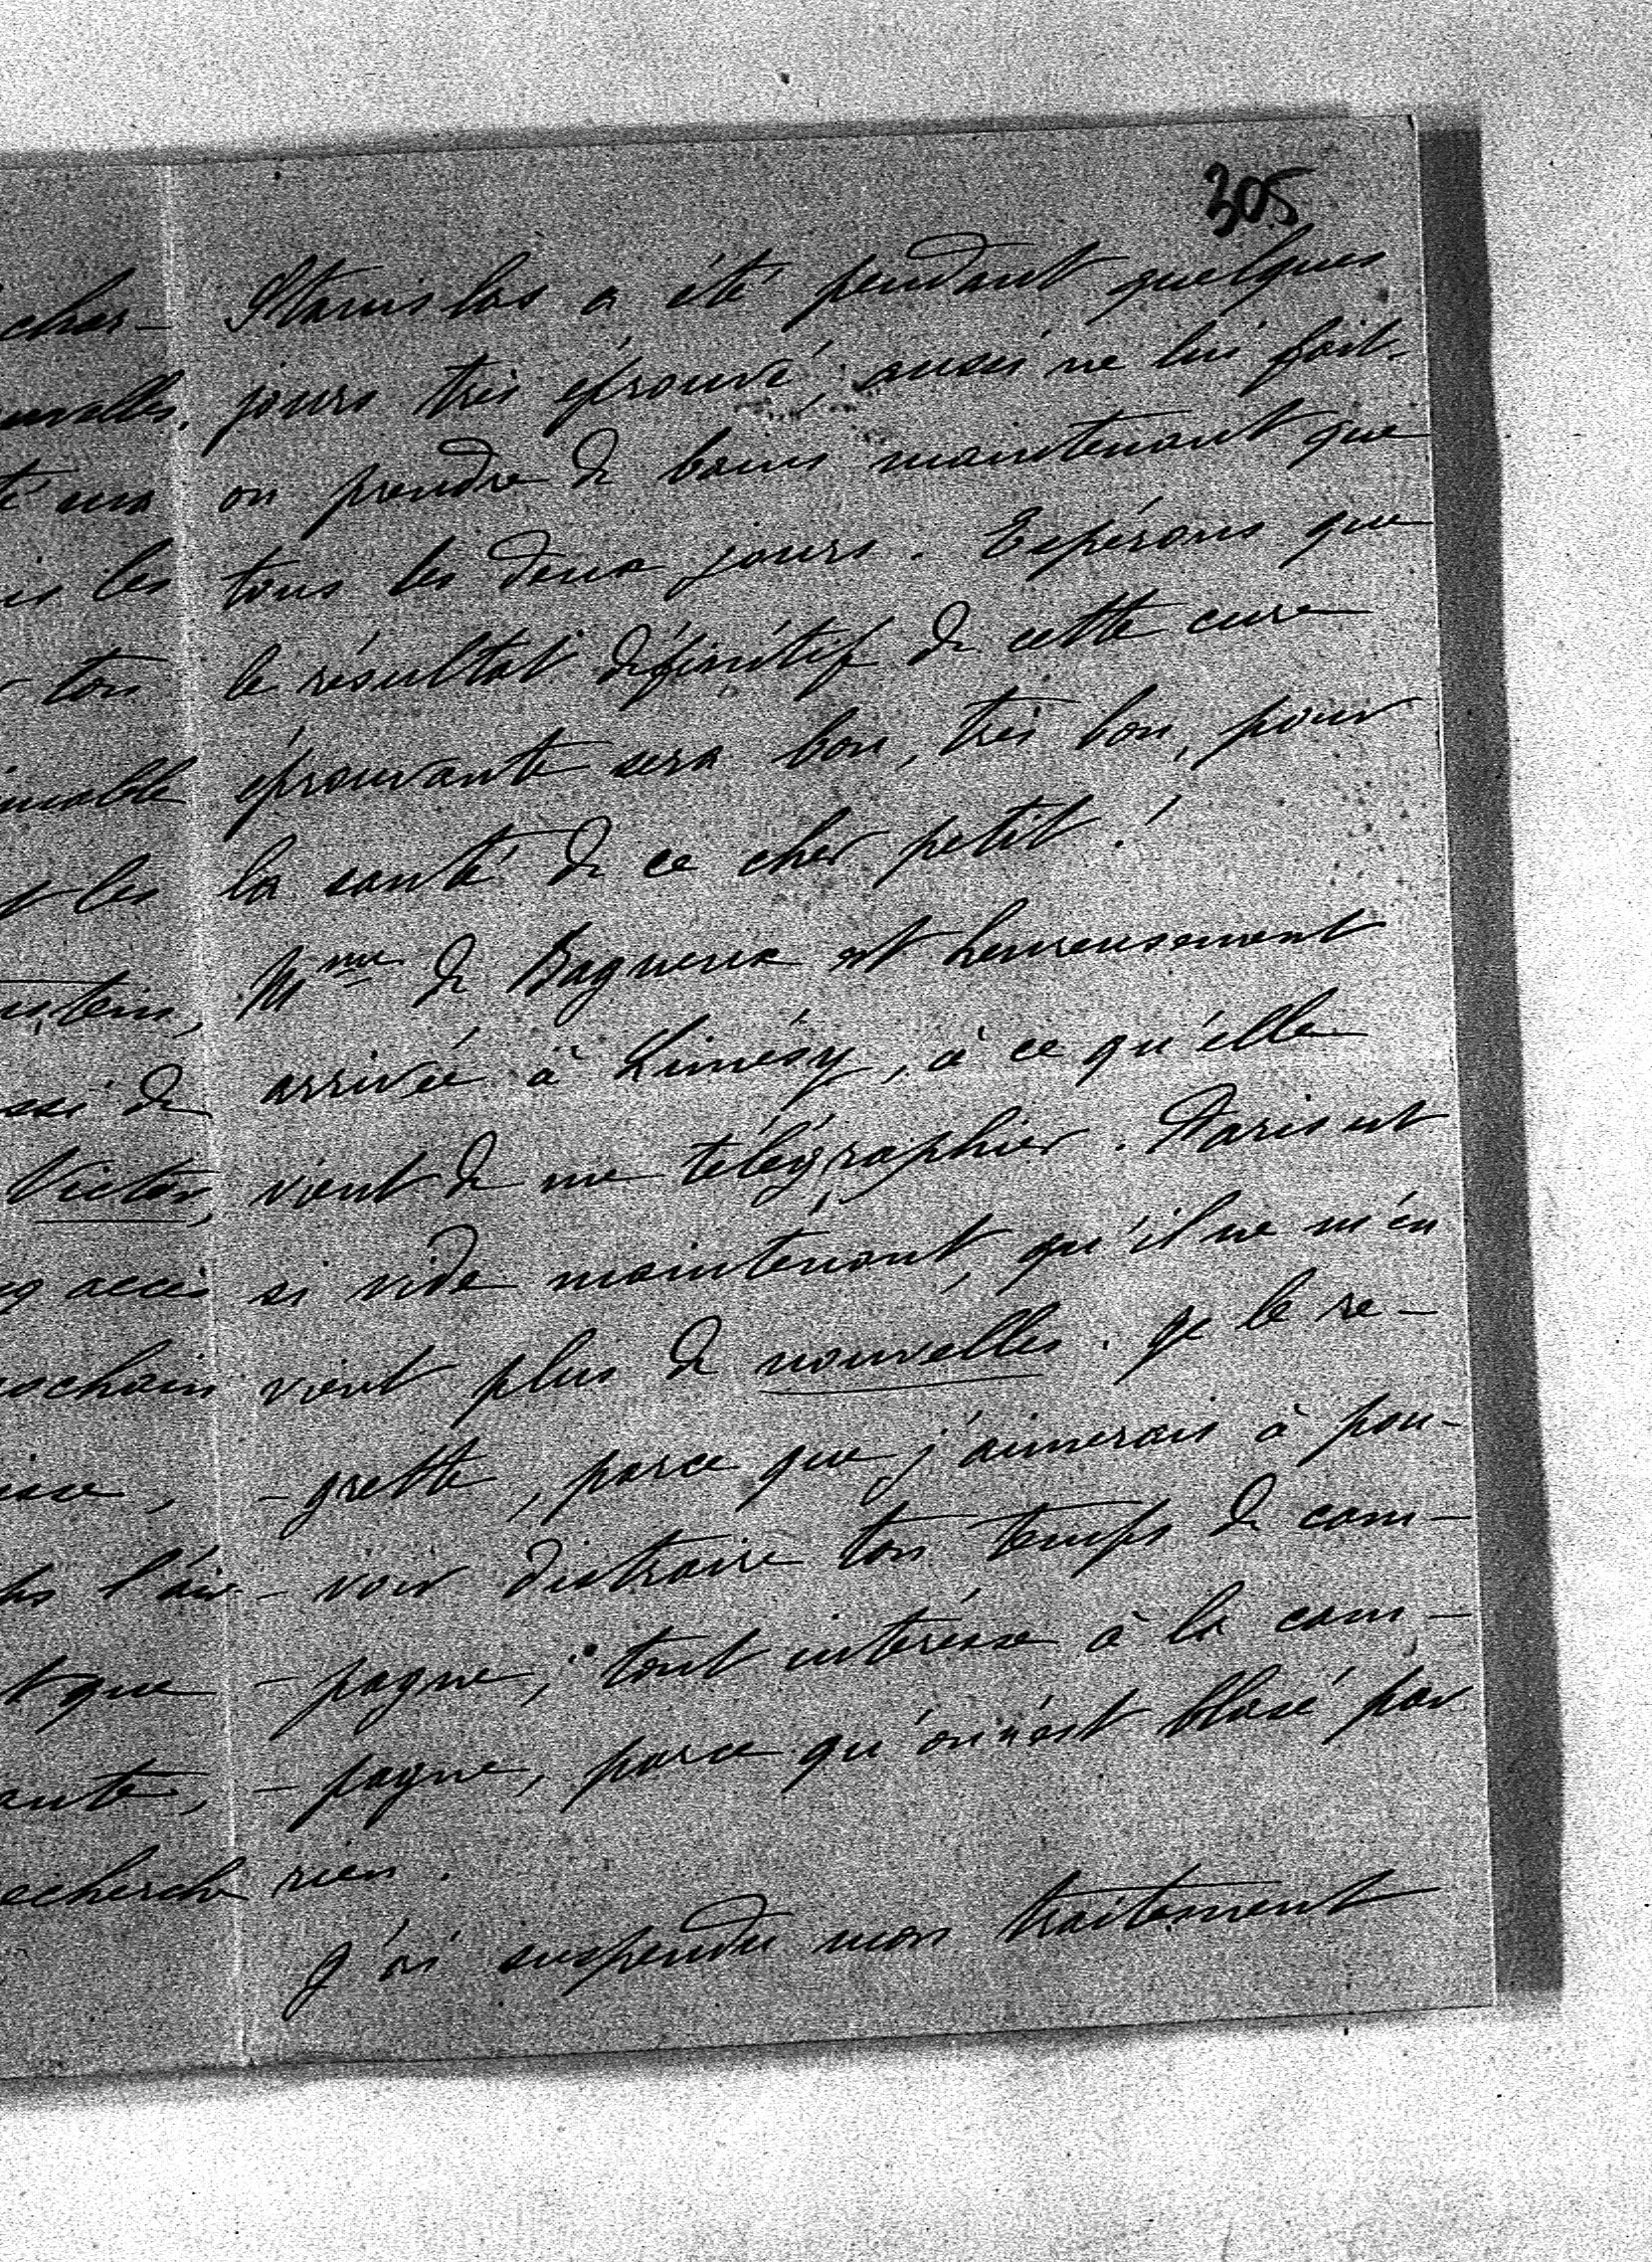 305
Stanislas a été pendant quelques
jours très éprouvé ; aussi ne lui fait-
on prendre de bains maintenant que
tous les deux jours. Espérons que
le résultat définitif de cette cure
éprouvante sera bon, très bon, pour
la santé de ce cher petit !
Mme de Bagneux est heureusement
arrivée à Limésy, à ce qu'elle
vient de me télégraphier. Paris est
si vide maintenant, qu'il ne m'en
vient plus de nouvelles. Je le re-
-grette, parce que j'aimerais à pou-
-voir distraire ton temps de cam-
-pagne ; tout intéresse à la cam-
-pagne, parce qu'on n'est blasé par
rien.
J'ai suspendu mon traitement
char-
les
ton
les
Victor,
l'air
que
recherche